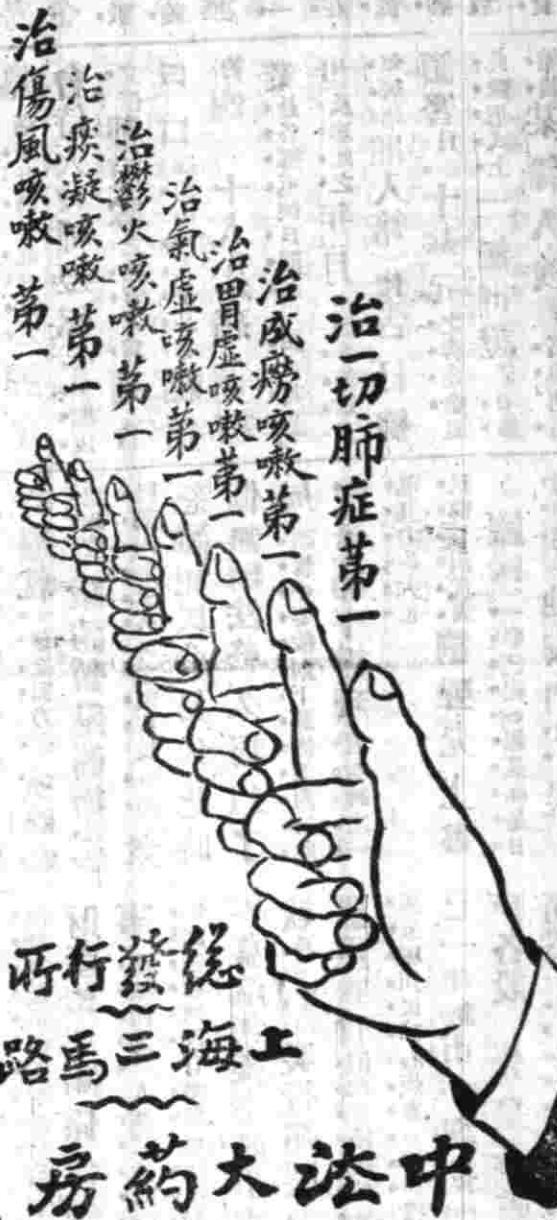 治一切肺症第一
治成癆咳嗽第一
治胃虛咳嗽第一
治氣虛咳嗽第一
治鬱火咳嗽第一
治痰凝咳嗽第一
治傷風咳嗽第一
總發行所
上海三馬路
中法大葯房